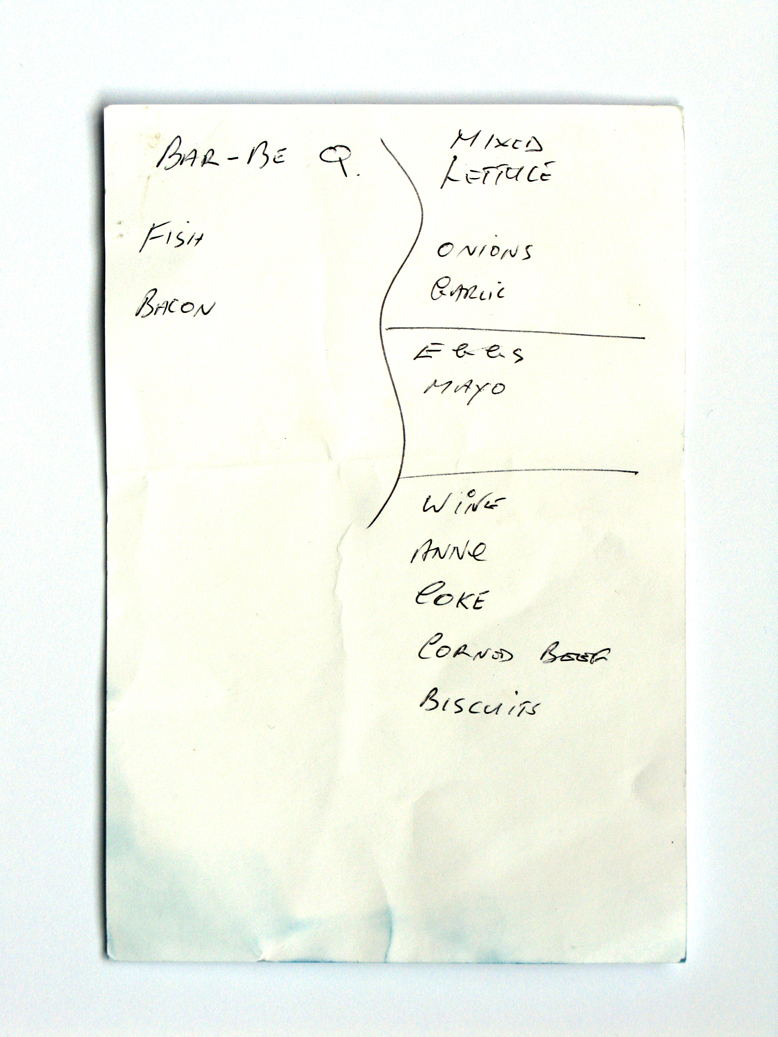 BAR-BE Q.
FISH
BACON
MIXED
LETTUCE
ONIONS
GARLIC
EGGS
MAYO
WINE
ANNE
COKE
CORNED BEEF
BISCUITS